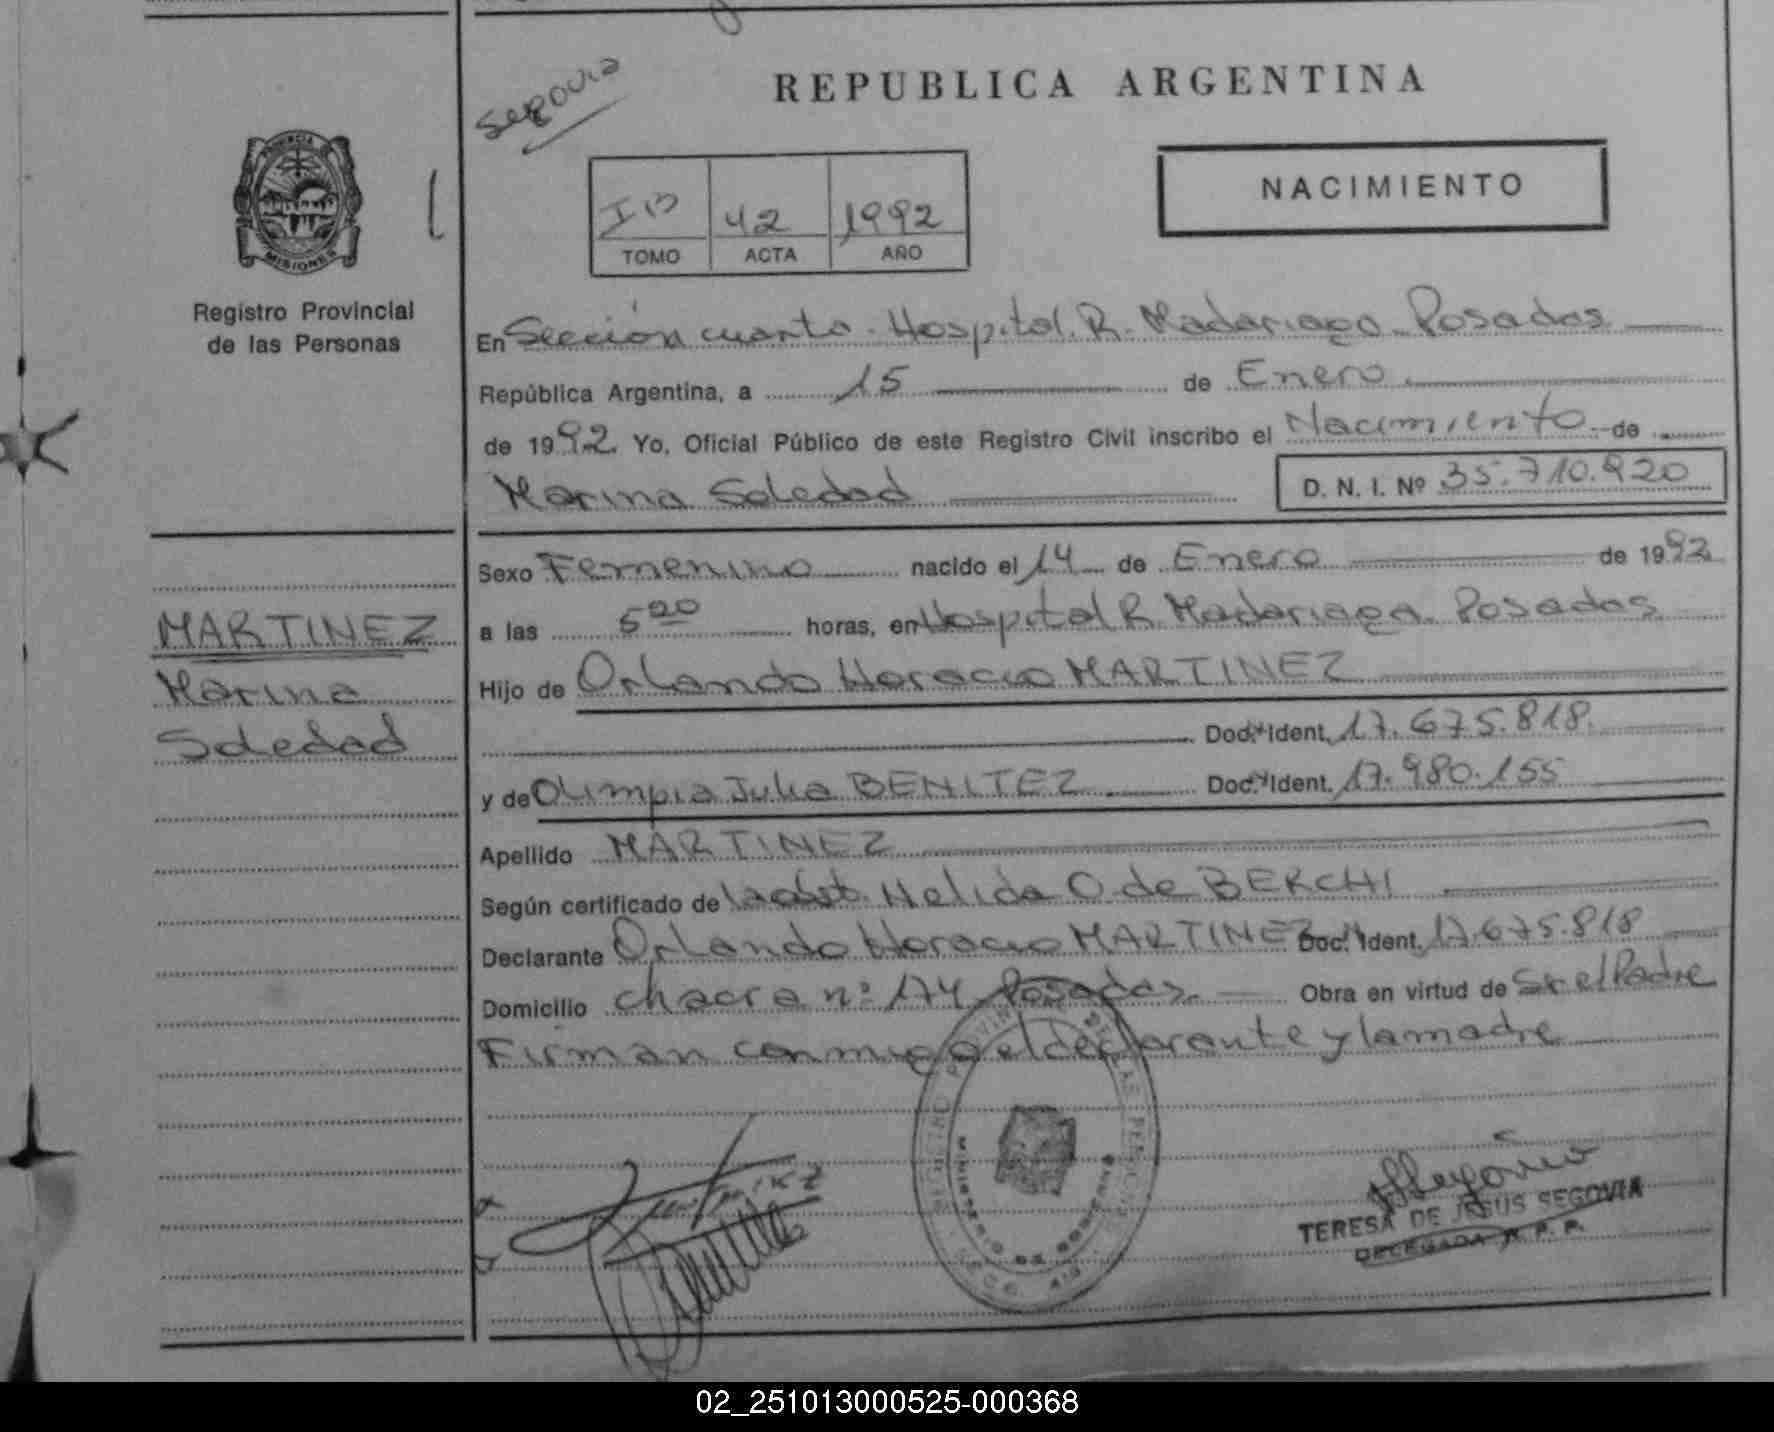 Segovia
REPUBLICA ARGENTINA
PROVINCIA
MISIONES
NACIMIENTO
I B 42 1992
TOMO ACTA AÑO
Registro Provincial
de las Personas
En Sección cuarta. Hospital. R. Madariaga. Posadas
República Argentina, a 15 de Enero
de 1992. Yo, Oficial Público de este Registro Civil inscribo el Nacimiento de
Marina Soledad D. N. I. Nº 35.710.920
Sexo Femenino nacido el 14 de Enero de 1992
a las 5 20 horas, en Hospital R. Madariaga. Posadas
MARTINEZ
Marina
Soledad
Hijo de Orlando Horacio MARTINEZ
Doc. Ident. 17.675.818.
y de Olimpia Julia BENITEZ Doc. Ident. 17.980.155
Apellido MARTINEZ
Según certificado de la obst. Nelida O. de BERCHI
Declarante Orlando Horacio MARTINEZ Doc. Ident. 17.675.818
Domicilio chacra nº 174 Posadas. Obra en virtud de Ser el Padre
Firman conmigo el declarante y la madre
REGISTRO PROVINCIAL DE LAS PERSONAS
MINISTERIO DE GOBIERNO
TERESA DE JESUS SEGOVIA
DELEGADA R. P. P.
02_251013000525-000368